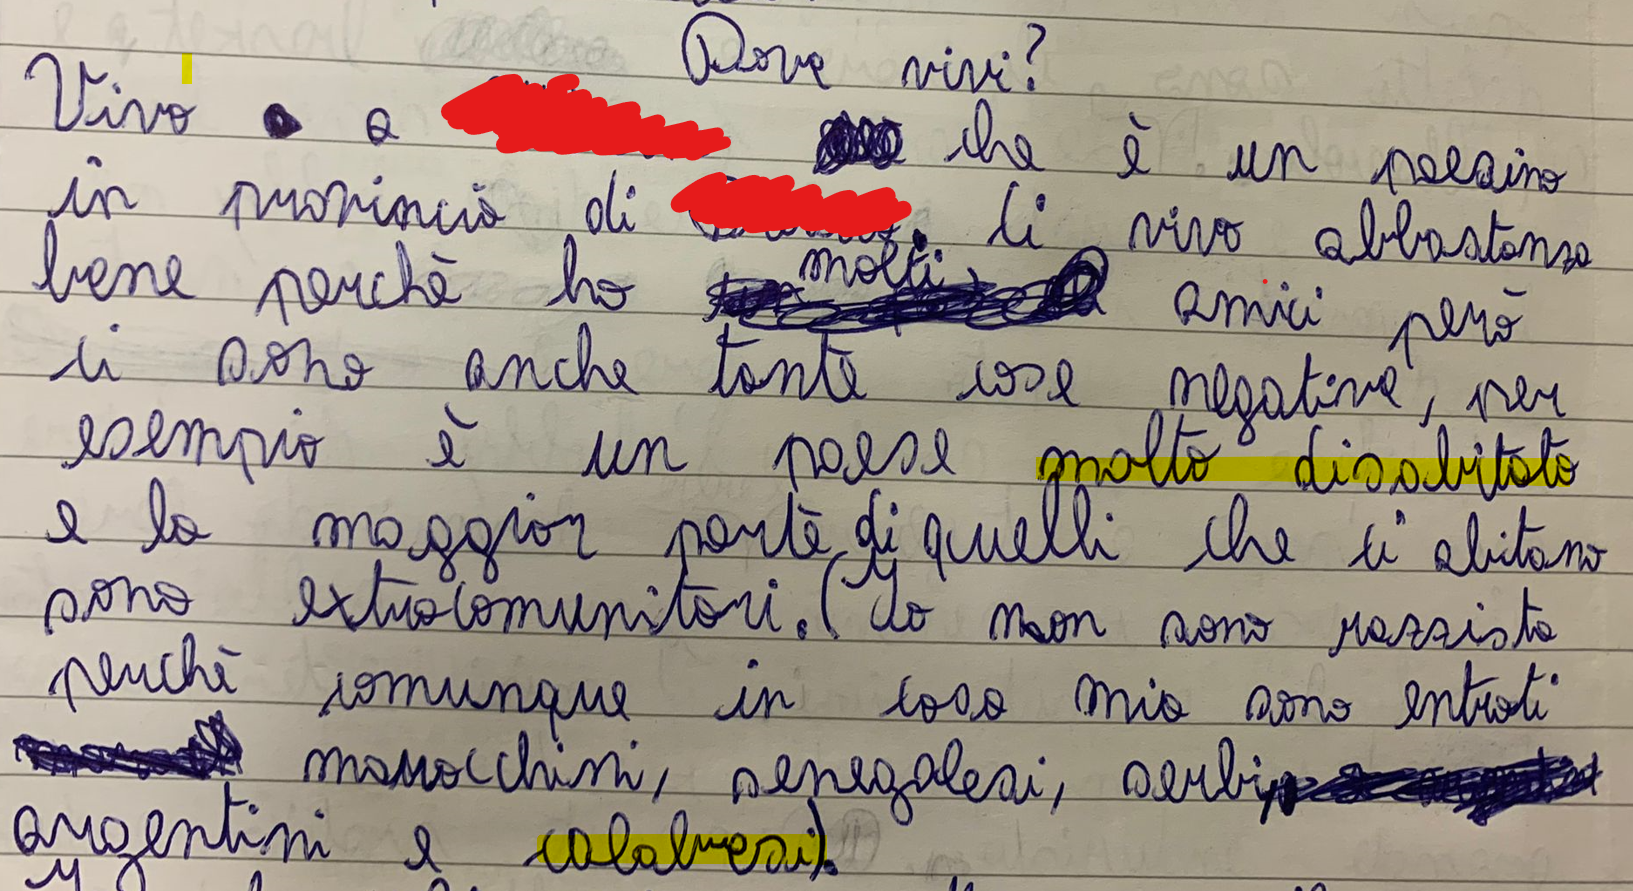 Dove vivi?
Vivo a che è un paesino
in provincia di . Ci vivo abbastanza
bene perchè ho molti amici però
ci sono anche tante cose negative, per
esempio è un paese molto disabitato
e la maggior parte di quelli che ci abitano
sono extracomunitari. (Io non sono razzista
perchè comunque in casa mia sono entrati
marocchini, senegalesi, serbi,
argentini e calabresi).